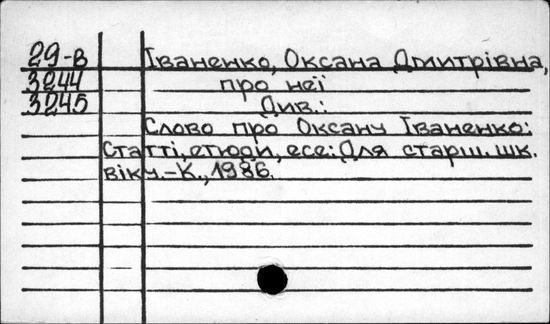 29-В Іваненко, Оксана Дмитрівна,
3244 про неї
3245 Див.:
Слово про Оксану Іваненко:
Статті, етюди, есе: Для старш. шк.
віку.-К., 1986.